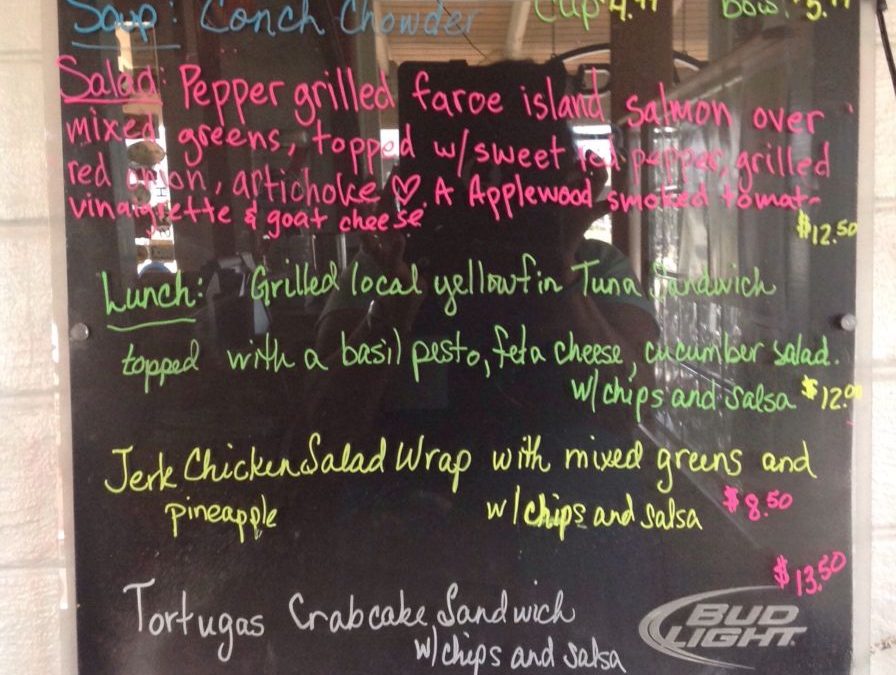 Soup: Conch Chowder Cup 4.99 Bowl 5.99
Salad: Pepper grilled faroe island salmon over
mixed greens, topped w/sweet red pepper, grilled
red onion, artichoke ♡. A Applewood smoked tomat-
vinaigrette & goat cheese
$12.50
Lunch: Grilled local yellowfin Tuna Sandwich
topped with a basil pesto, feta cheese, cucumber salad.
w/chips and salsa $12.00
Jerk Chicken Salad Wrap with mixed greens and
pineapple w/chips and salsa $8.50
$13.50
Tortugas Crabcake Sandwich
w/chips and salsa
BUD
LIGHT